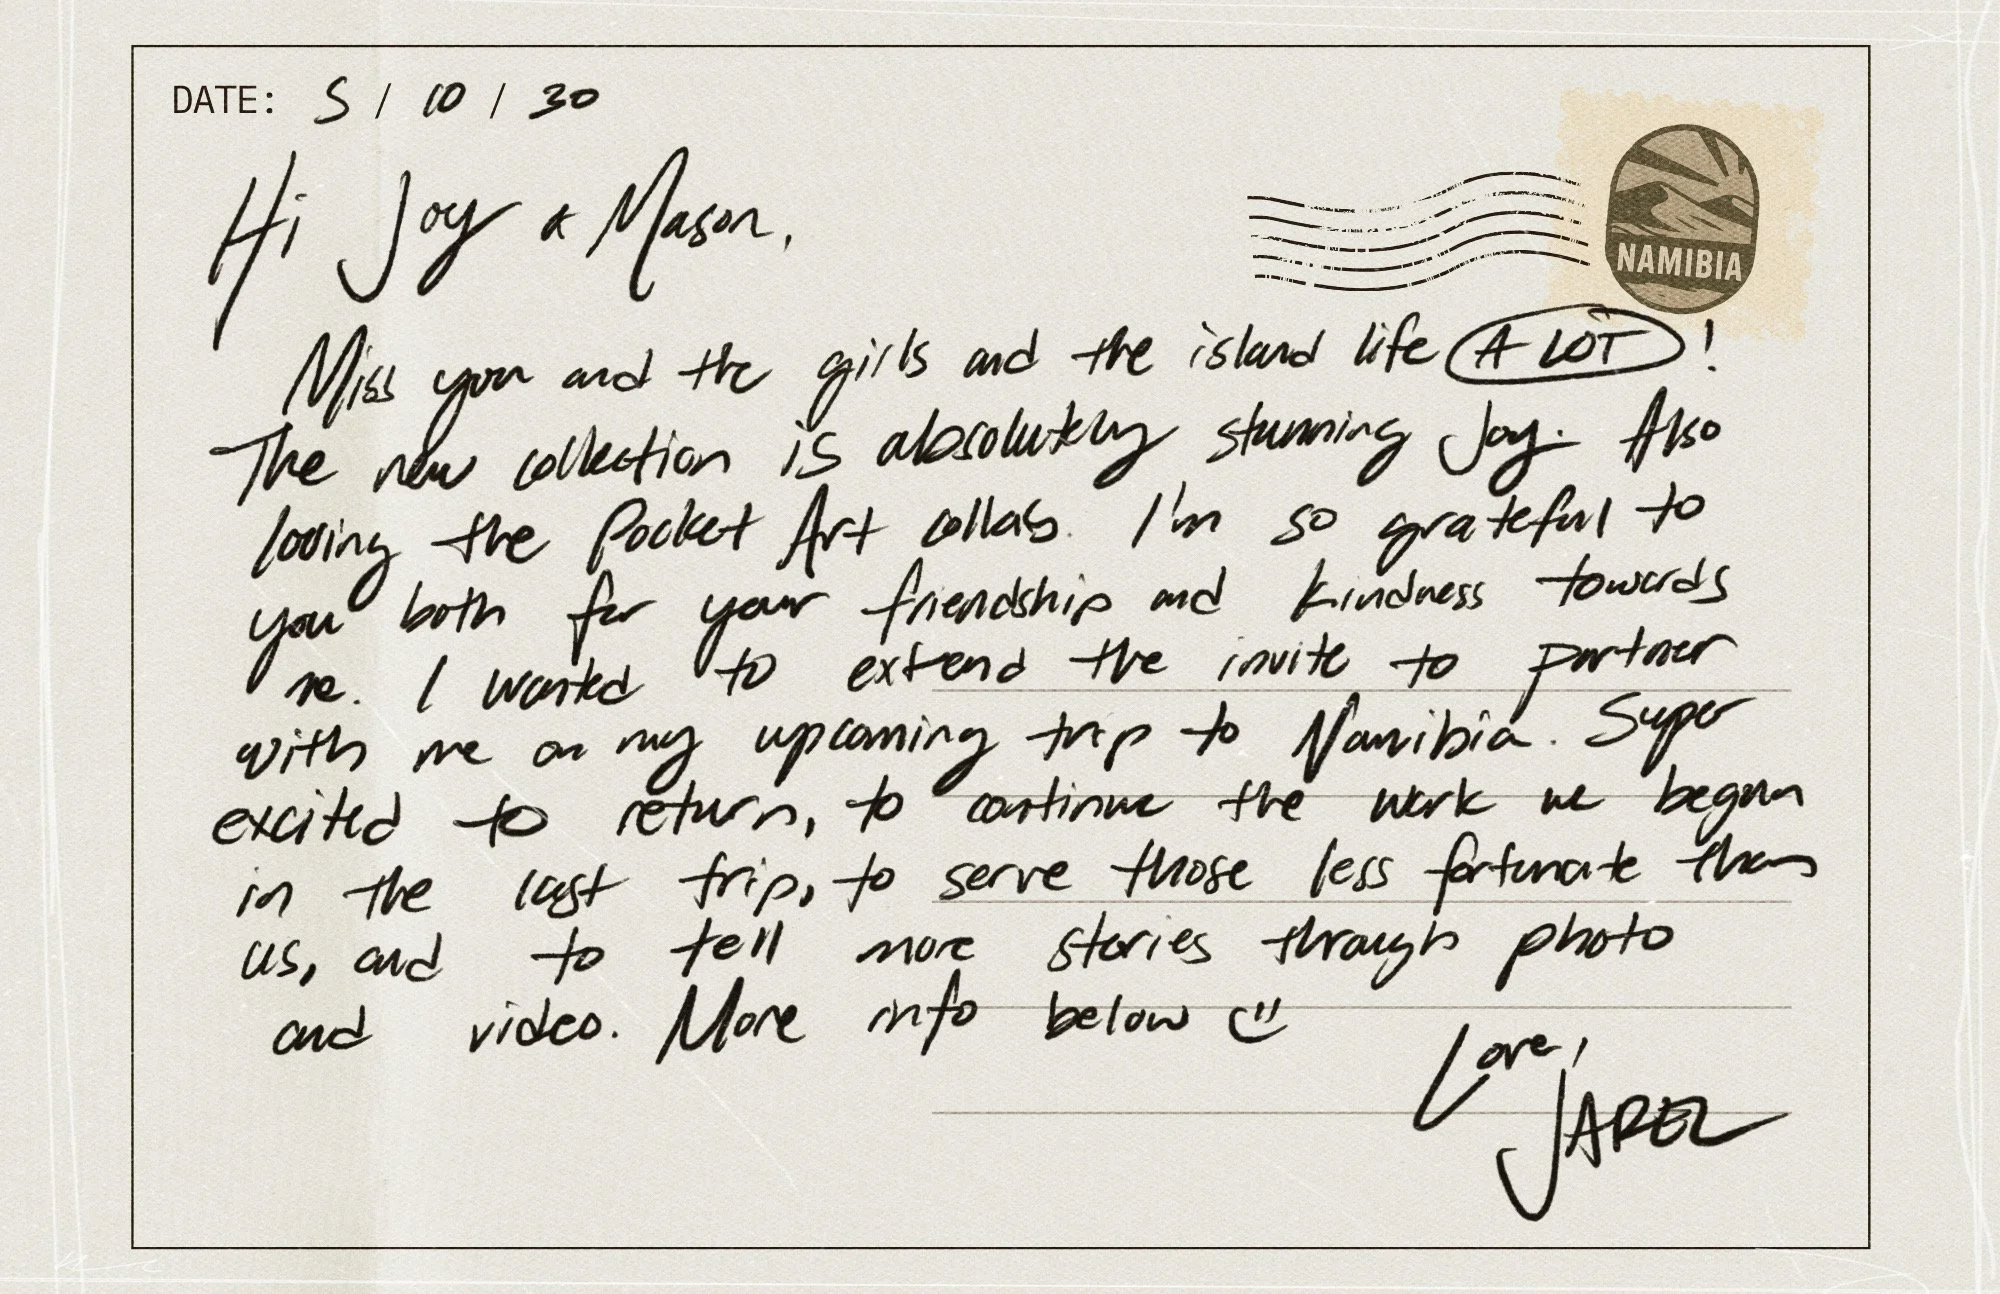 DATE: 5 / 10 / 30
NAMIBIA
Hi Joy & Mason,
Miss you and the girls and the island life A LOT!
The new collection is absolutely stunning Joy. Also
loving the Pocket Art collab. I'm so grateful to
you both for your friendship and kindness towards
me. I wanted to extend the invite to partner
with me on my upcoming trip to Namibia. Super
excited to return, to continue the work we began
in the last trip, to serve those less fortunate than
us, and to tell more stories through photo
and video. More info below
Love,
JAREL